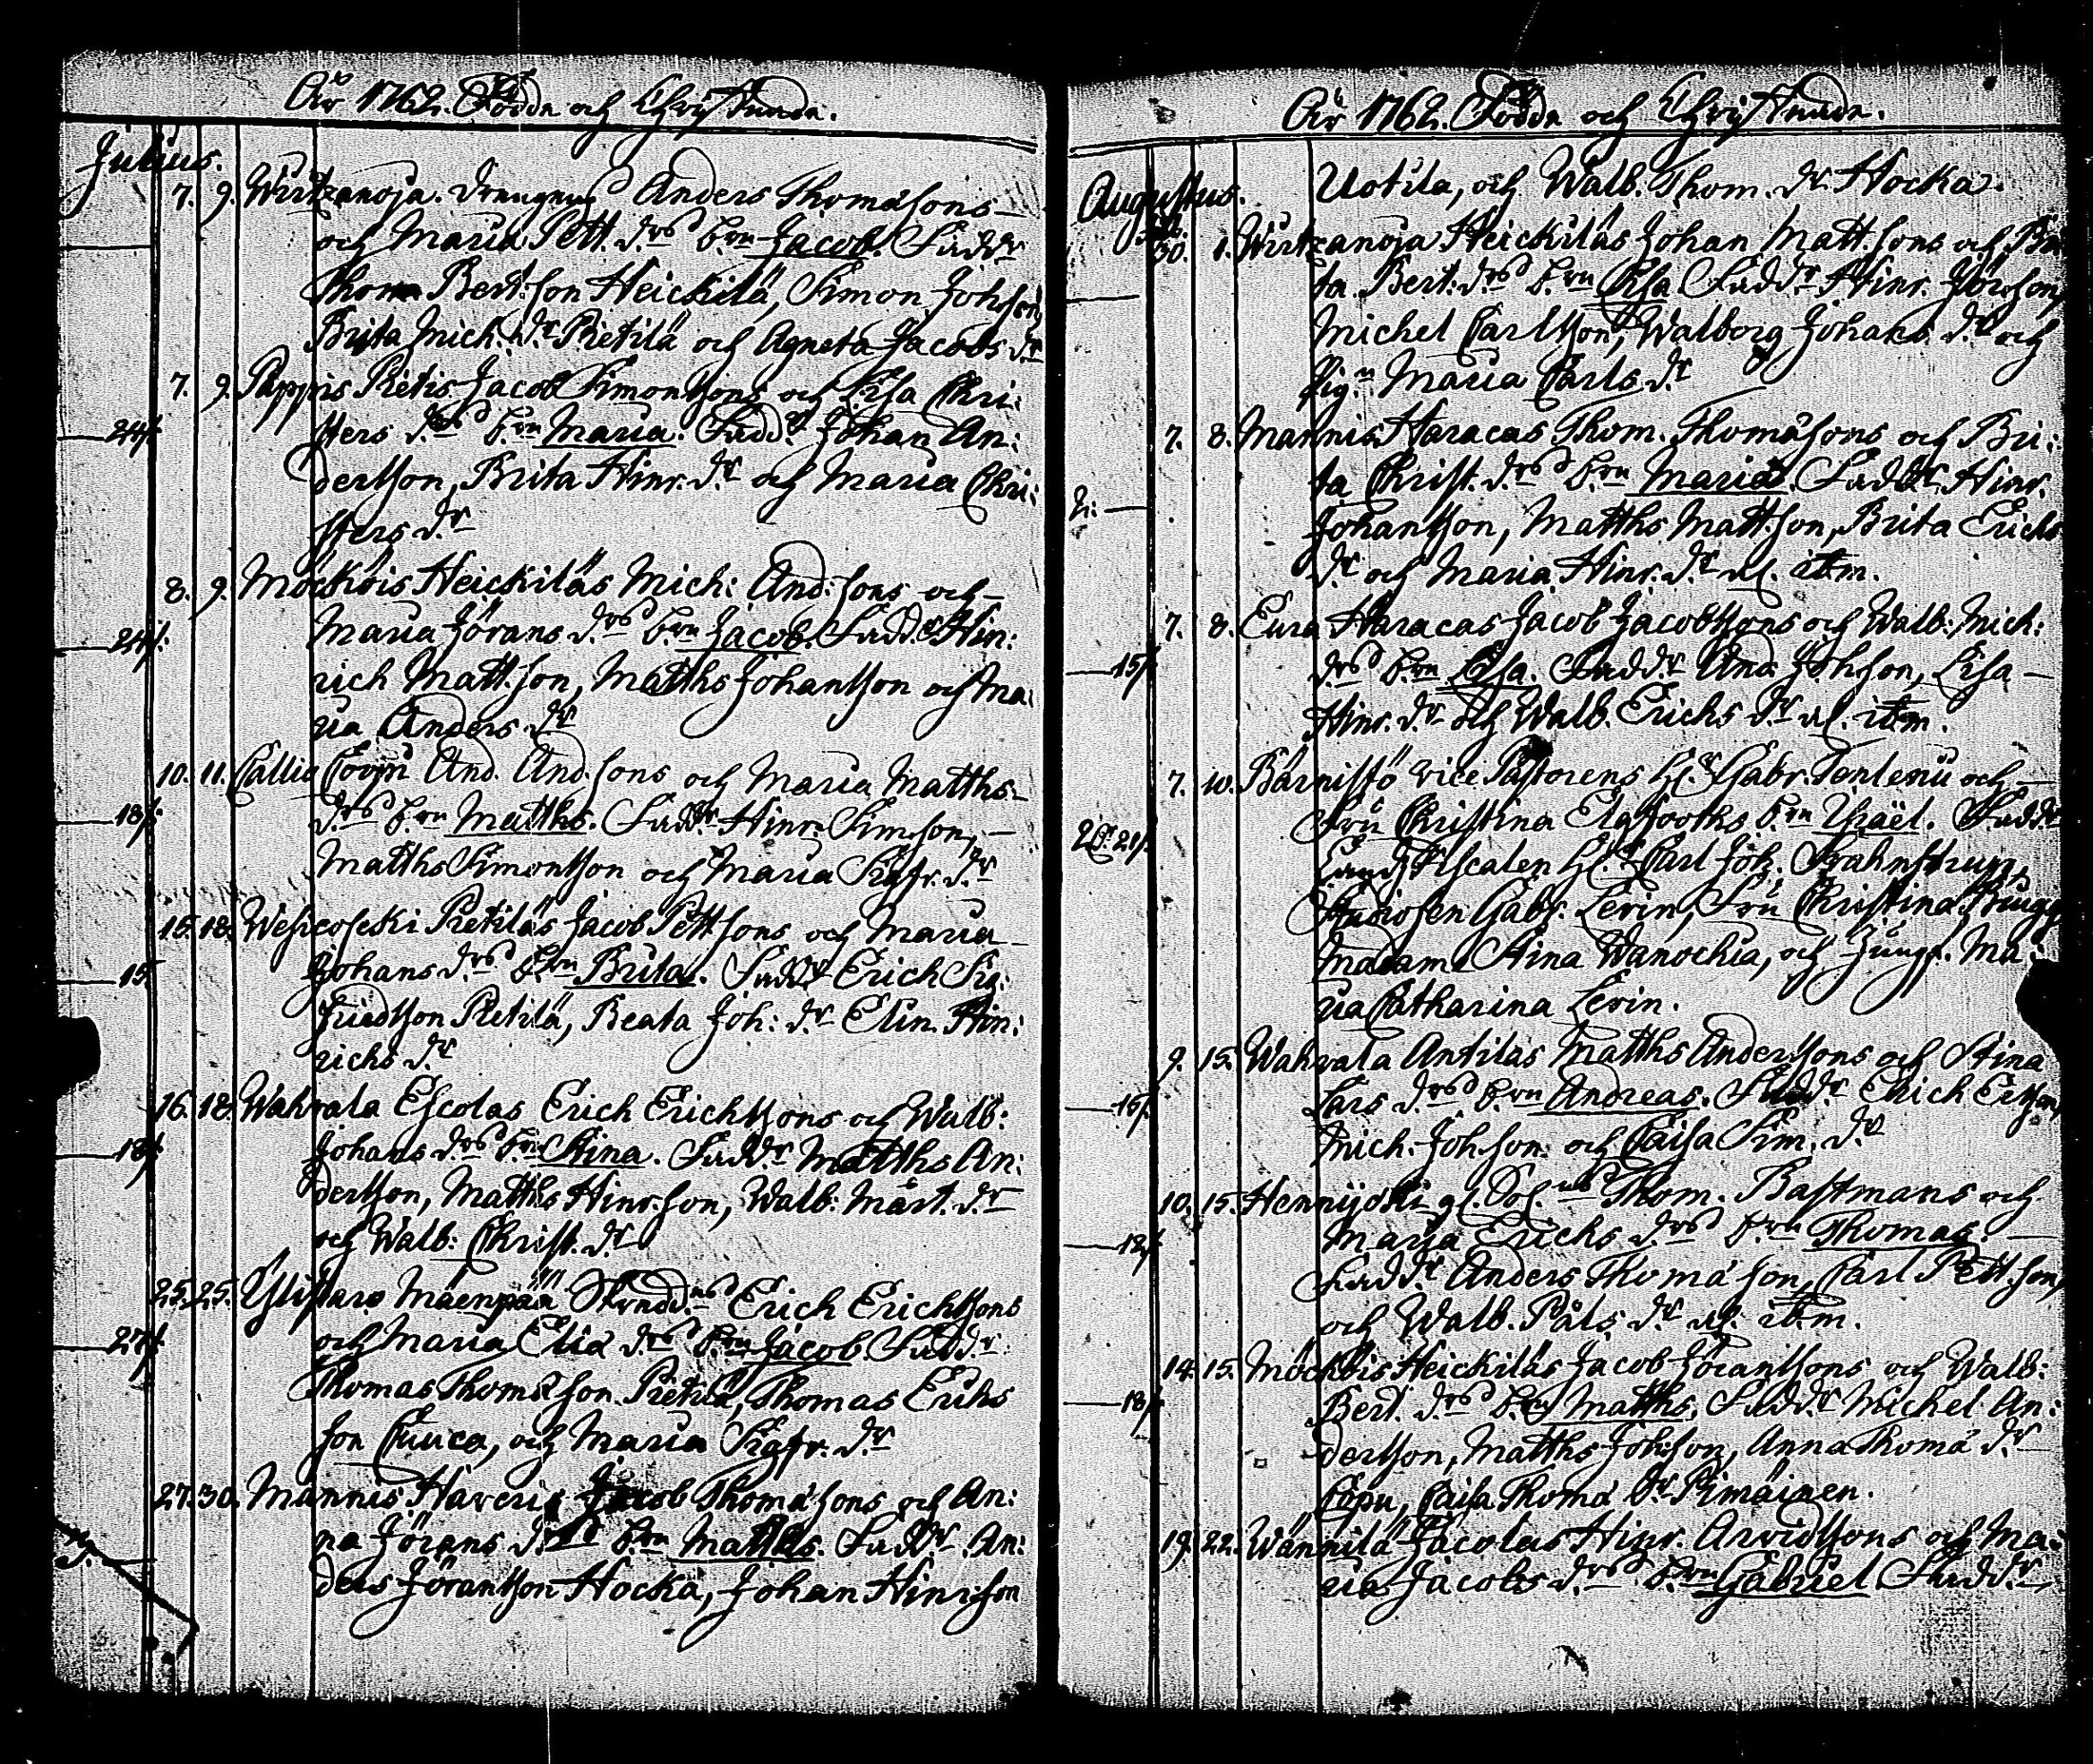 År 1762. Födde och Christnade.
Julius.
7. 9. Wirtzanoja. drängens Anders Thomæsons
och Maria Pett. drs b:rn Jacob. Fadd:r
Thom Bert:son Heickilä, Simon Johson
Brita Mich. dr Pietilä och Agneta Jacobs dr
7. 9. Pappis Pietis Jacob Simonssons och Lisa Chri:
24/. sters drs b:rn Maria. Fadd:r Johan An:
dersson, Brita Hinr. dr och Maria Chri:
sters dr
8. 9. Möckois Heickiläs Mich: And:sons och
24/. Maria Jörans drs b:rn Jacob. Fadd:r Hin:
rich Matt.son, Matths Johansson och Ma:
ria Anders dr
10. 11. Callio And. And.sons och Maria Matths
18/. drs b:rn Matths. Fadd:r Hinr. Simson,
Matths Simonsson och Maria Sigfr. dr
15. 18. Wesicoski Pietiläs Jacob Pett.sons och Maria
15 Johans drs b:rn Brita. Fadd:r Erich Sig:
friedsson Pietilä, Beata Joh: dr Elin Hin:
richs dr
16. 18. Wahvala Escolas Erich Erichssons och Walb:
18/. Johans drs b:rn Stina. Fadd:r Matths An:
dersson, Matths Hinr.son, Walb: Mårt. dr
och Walb: Christ. dr
25. 25. Ylistaro Mäenpää Erich Erichssons
27/. och Maria Eliæ drs b:rn Jacob. Fadd:r
Thomas Thomæson Pietilä, Thomas Erichs
son och Maria Sigfr. dr
27. 30. Mannis Haveris Jacob Thomæsons och An:
3. na Jörans drs b:rn Matths. Fadd:r An:
ders Jöransson Hocka, Johan Hinr:son
År 1762. Födde och Christnade.
Uotila, och Walb. Thom. dr Hocka.
Augustus.
30. 1. Wirtzanoja Heickiläs Johan Matt.sons och Bri
ta Bert. drs b:rn Lisa Fadd:r Hinr. Jörson,
Michel Carlsson, Walborg Johans dr och
Pig:n Maria Carls dr
7. 8. Mannis Haracas Thom. Thomæsons och Bri:
ta Christ. drs b:rn Maria. Fadd:r Hinr.
2: Johansson, Matths Matt.son, Brita Erichs
dr och Maria Hinr. dr
7. 8. Eura Haracas Jacob Jacobssons och Walb: Mich:
15/. drs b:rn Lisa. Fadd:r And Johson, Lisa
Hinr. dr och Walb. Erichs dr
7. 10. Bärnistö vice Pastorens H:r Gabr. Tenlenii och
Fru Christina b:rn Israël. Fadd:r
21/. Fiscalen H:r Carl Joh.
Studiosen Gabr. Levin, Fru Christina
Madame Stina Wanochia, och Jungf. Ma:
ria Catharina Levin.
9. 15. Wahvala Antilas Matths Anderssons och Stina
16/. Lars drs b:rn Andreas. Fadd:r Erich Ersson,
Mich: Joh:son och Caisa Sim. dr
10. 15. Hennijoki Thom. Bastmans och
12/. Maria Erichs drs b:rn Thomas.
Fadd:r Anders Thomæson, Carl Pett.son,
och Walb. Påls dr
14. 15. Möckois Heickiläs Jacob Jöranssons och Walb:
18/. Bert. drs b:rn Matths. Fadd:r Michel An:
dersson, Matths Joh:son, Anna Thomæ dr
Papu, Caisa Thomæ dr Rimäinen.
19. 22. Wännilä Jacolas Hinr. Arvidssons och Ma:
ria Jacobs drs b:rn Gabriel Fadd:r